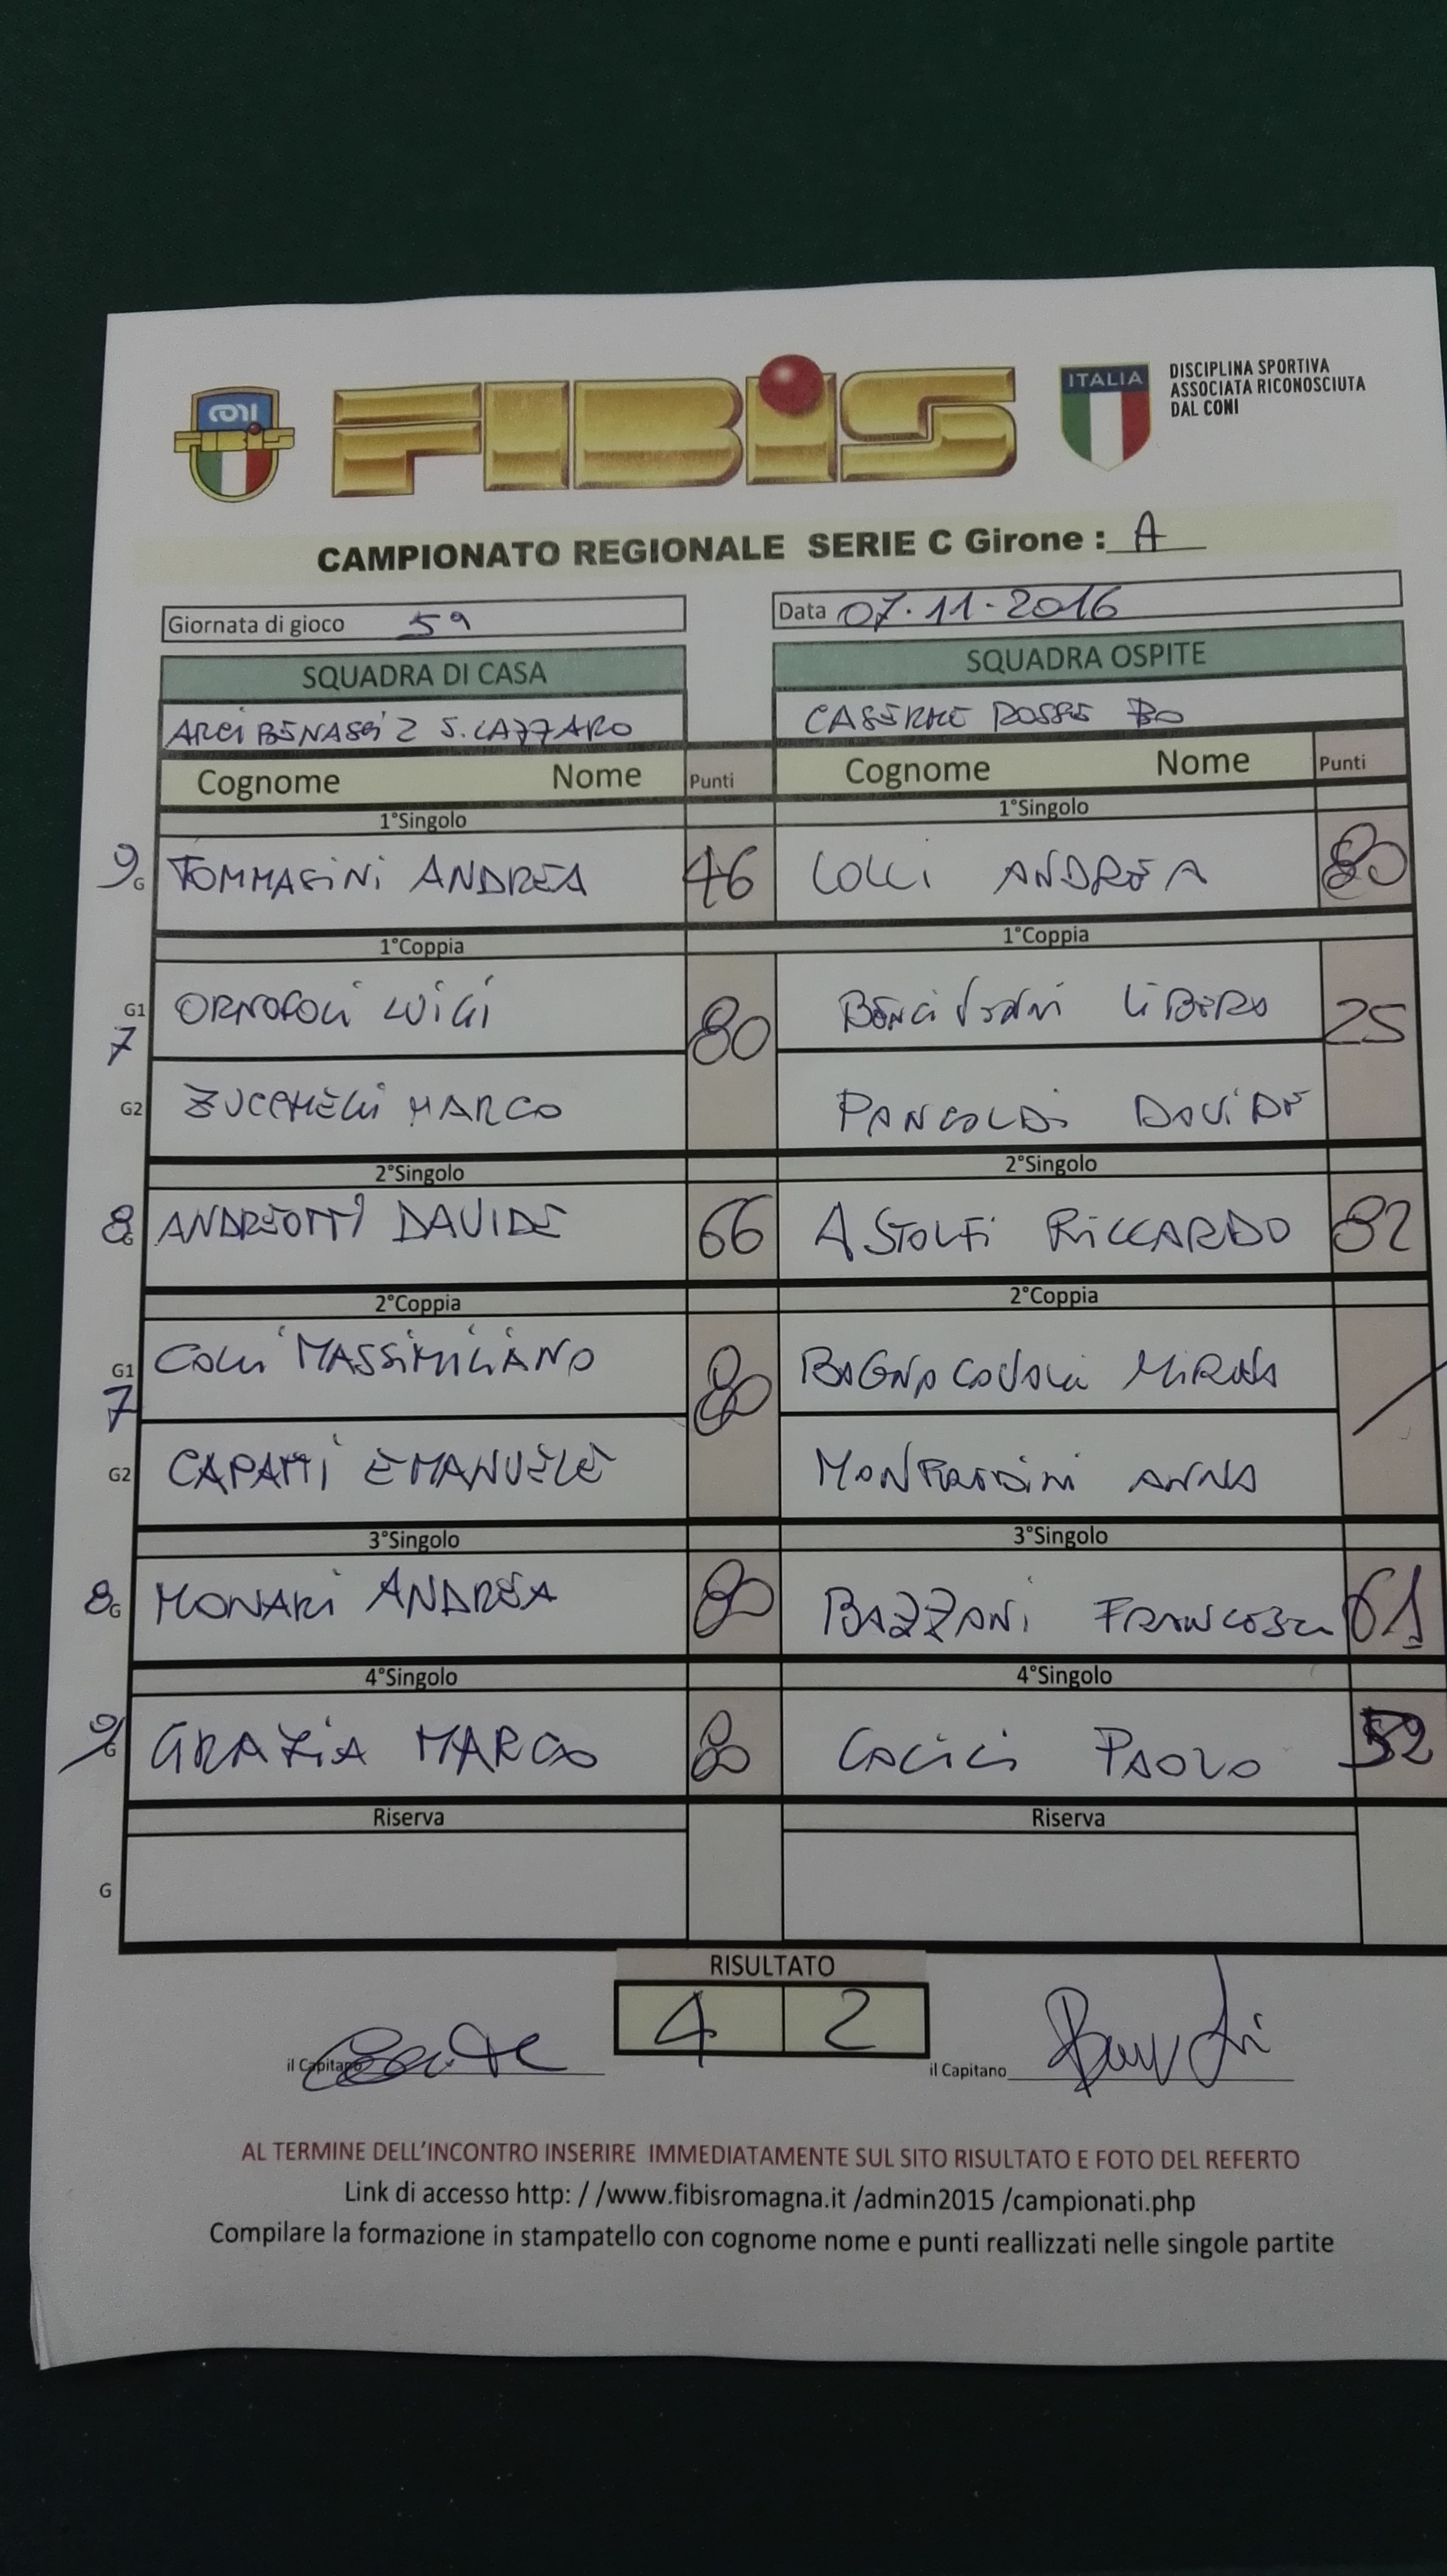 CONI
FIBIS
FIBiS
ITALIA
DISCIPLINA SPORTIVA
ASSOCIATA RICONOSCIUTA
DAL CONI
CAMPIONATO REGIONALE SERIE C Girone : A
Giornata di gioco 5ª
Data 07.11-2016
SQUADRA DI CASA
SQUADRA OSPITE
ARCI BENASSI 2 S. LAZZARO
CASERME ROSSE BO
Cognome Nome Punti Cognome Nome Punti
1°Singolo 1°Singolo
9 G TOMMASINI ANDREA 46 LOLLI ANDREA 80
1°Coppia 1°Coppia
G1 LUIGI LIBERO
7 80 25
G2 ZUCCHELLI MARCO PANCALDI DAVIDE
2°Singolo 2°Singolo
8 G ANDREOTTI DAVIDE 66 ASTOLFI RICCARDO 82
2°Coppia 2°Coppia
G1 COLLI MASSIMILIANO
7 80 /
G2 EMANUELE ANNA
3°Singolo 3°Singolo
8 G MONARI ANDREA 80 BAZZANI 61
4°Singolo 4°Singolo
9 G GRAZIA MARCO 80 PAOLO 52
Riserva Riserva
G
RISULTATO
4 2
il Capitano
il Capitano
AL TERMINE DELL'INCONTRO INSERIRE IMMEDIATAMENTE SUL SITO RISULTATO E FOTO DEL REFERTO
Link di accesso http: / /www.fibisromagna.it /admin2015 /campionati.php
Compilare la formazione in stampatello con cognome nome e punti reallizzati nelle singole partite